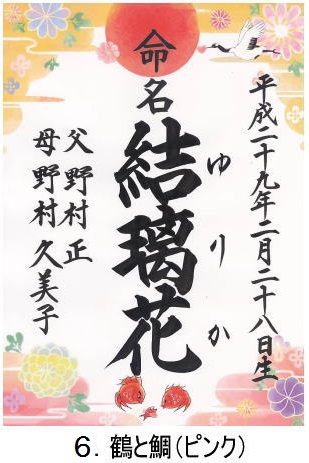 命名
平成二十九年二月二十八日生
結璃花
ゆりか
父 野村 正
母 野村 久美子
6. 鶴と鯛(ピンク)